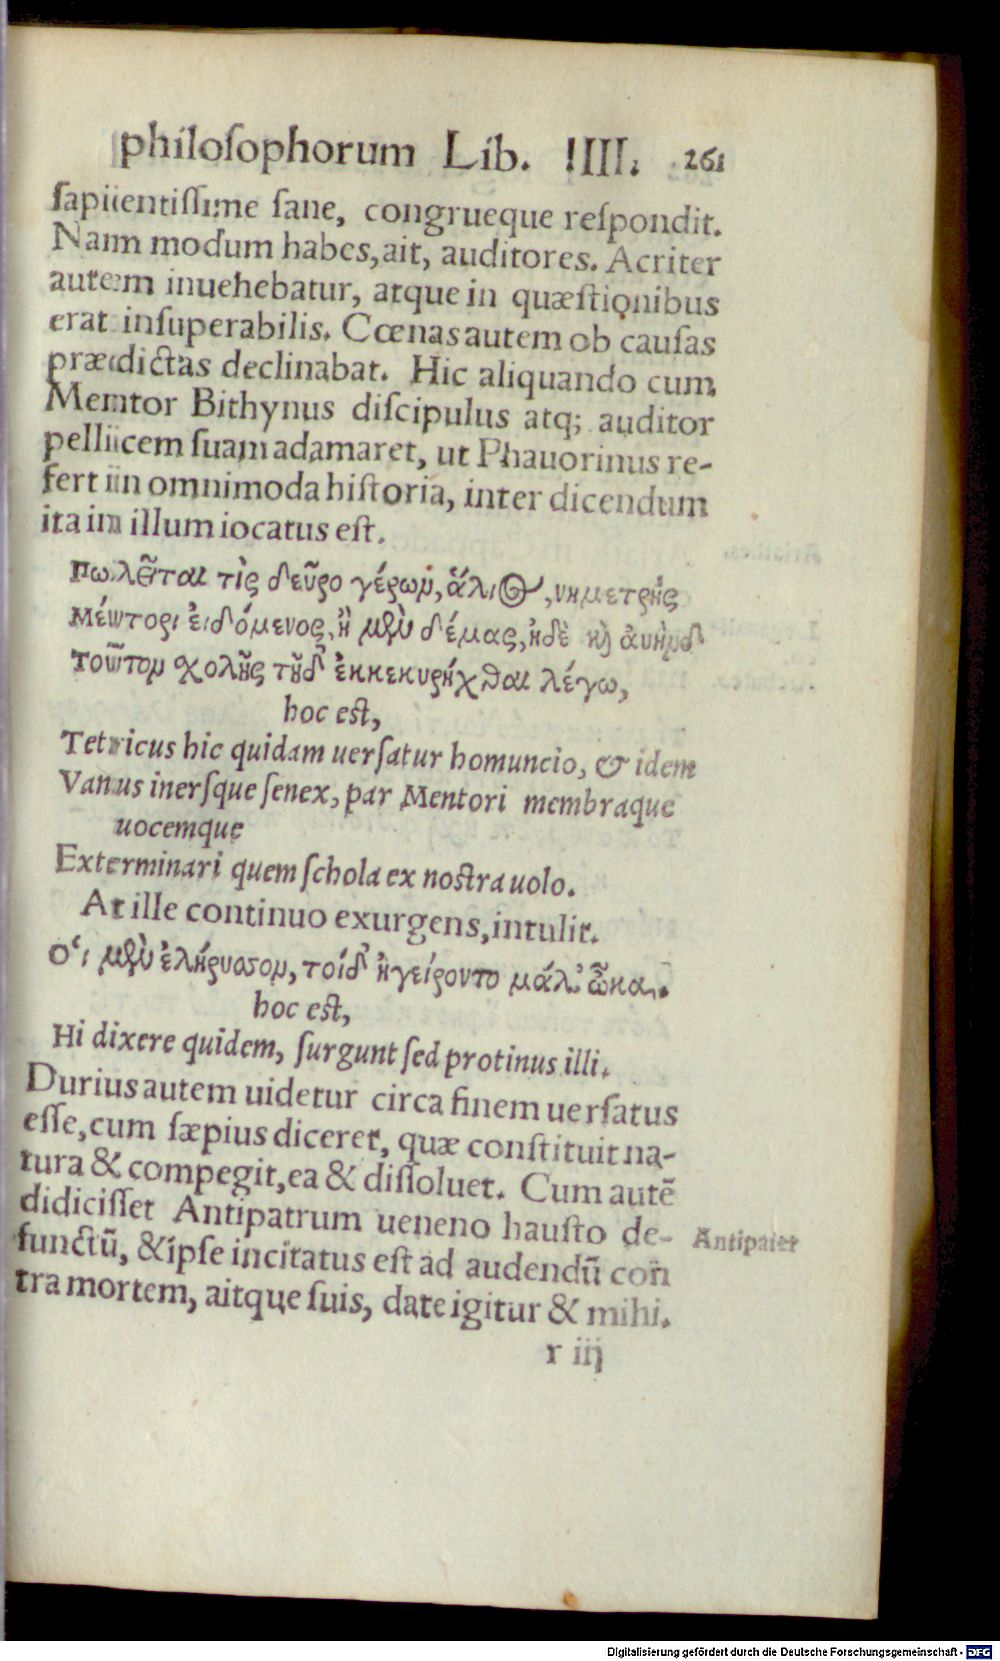 philosophorum Lib. IIII. 261
sapientissime sane, congrueque respondit.
Nam modum habes, ait, auditores. Acriter
autem inuehebatur, atque in quæstionibus
erat insuperabilis. Cœnas autem ob causas
prædictas declinabat. Hic aliquando cum
Mentor Bithynus discipulus atq; auditor
pellicem suam adamaret, ut Phauorinus re-
fert in omnimoda historia, inter dicendum
ita in illum iocatus est.
Πωλεῖται τὶς δεῦρο γέρων, ἅλιος, νημετρὴς
Μέντορι εἰδόμενος, ἢ μὲν δέμας, ἠδὲ καὶ ἀυήμδ
Τοῦτον χολῆς τῆδ' ἐκκεκυρήχθαι λέγω,
hoc est,
Tetricus hic quidam uersatur homuncio, & idem
Vanus inersque senex, par Mentori membraque
uocemque
Exterminari quem schola ex nostra uolo.
At ille continuo exurgens, intulit.
Οἱ μὲν ἐλήρυσσον, τοίδ' ἠγείροντο μάλ' ὦκα.
hoc est,
Hi dixere quidem, surgunt sed protinus illi.
Durius autem uidetur circa finem uersatus
esse, cum sæpius diceret, quæ constituit na-
tura & compegit, ea & dissoluet. Cum autē
didicisset Antipatrum ueneno hausto de- Antipater
functū, & ipse incitatus est ad audendū con
tra mortem, aitque suis, date igitur & mihi.
r iij
Digitalisierung gefördert durch die Deutsche Forschungsgemeinschaft - DFG